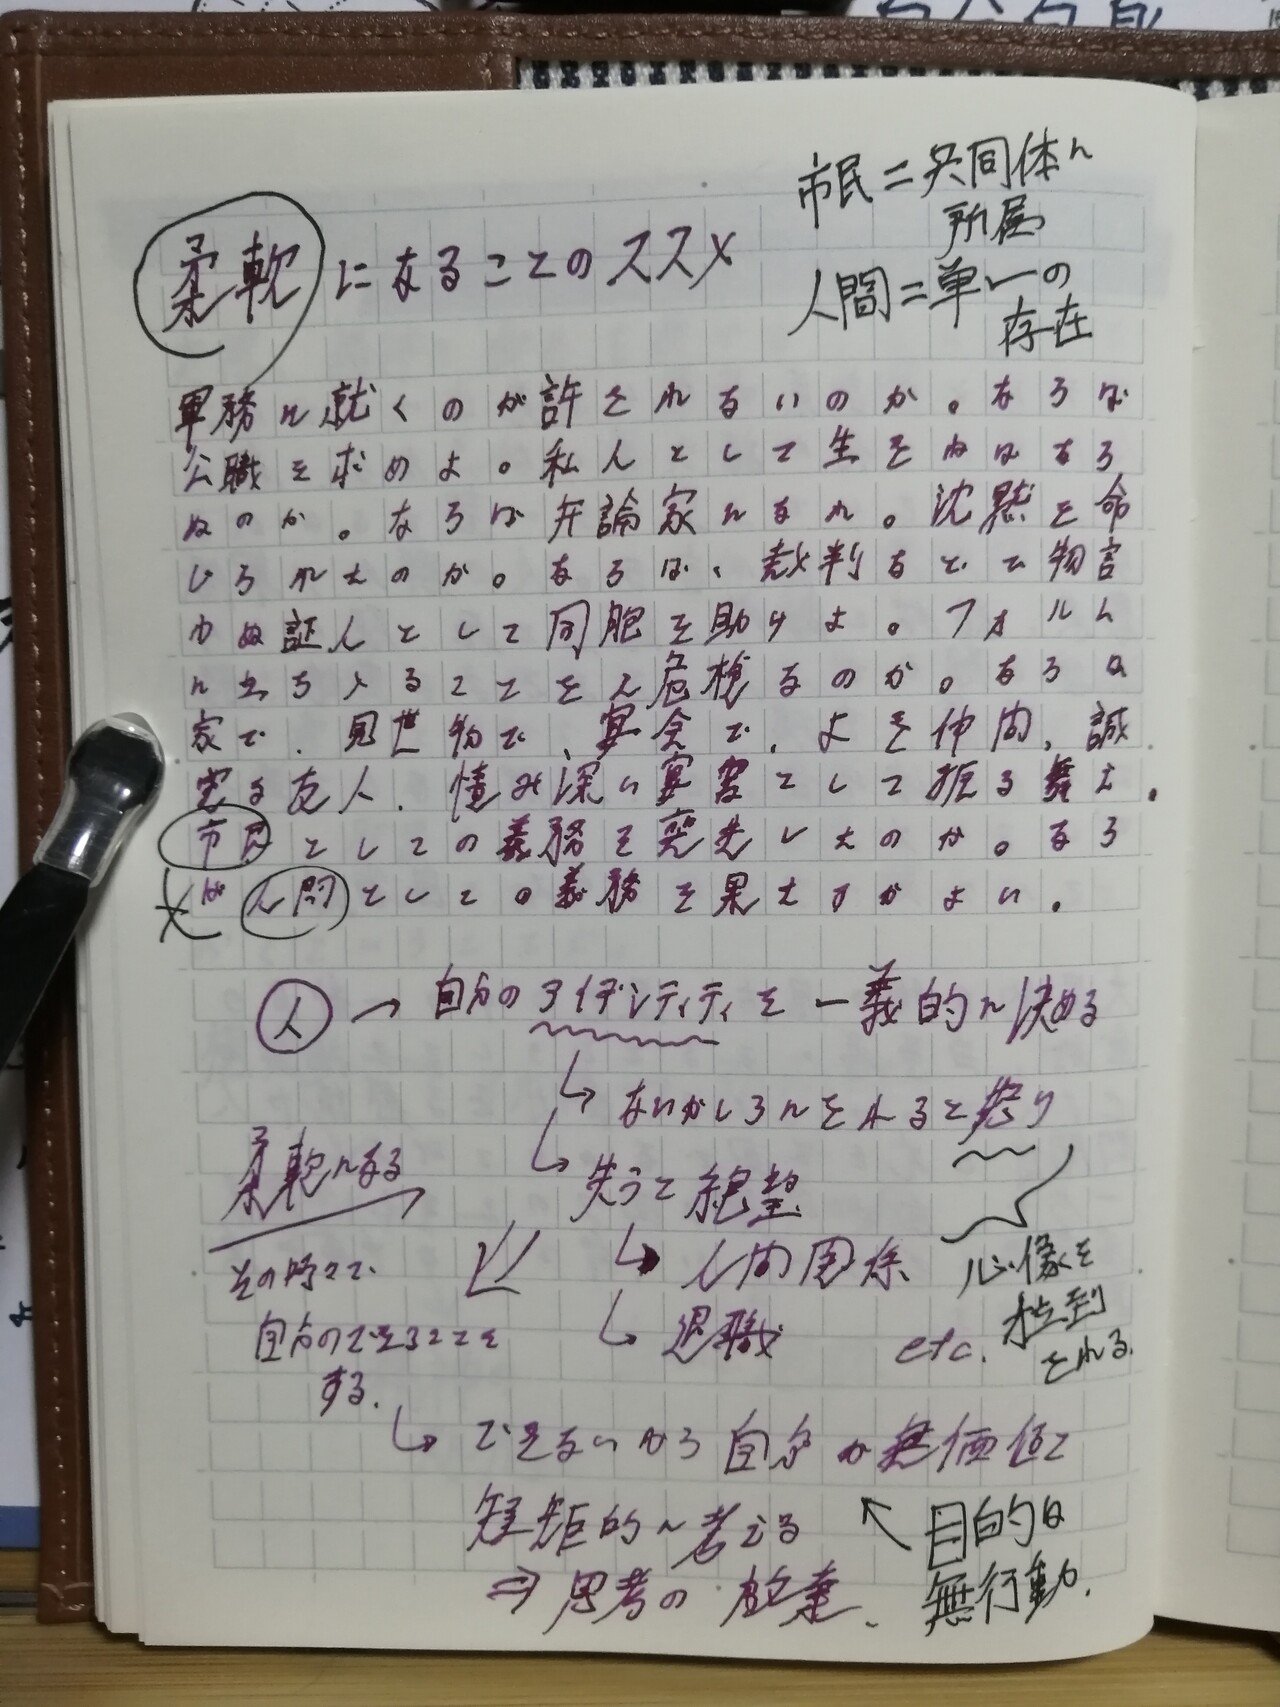 市民=共同体に
所属
人間=単一の
存在
柔軟になることのススメ
軍務に就くのが許されないのか。ならば
公職を求めよ。私人として生きねばなら
ぬのか。ならば弁論家になれ。沈黙を命
じられたのか。ならば、裁判などで物言
わぬ証人として同胞を助けよ。フォルム
に立ち入ることさえ危険なのか。ならば
家で、見世物で、宴会で、よき仲間、誠
実な友人、慎み深い宴客として振る舞え。
市民としての義務を喪失したのか。なら
ば人間としての義務を果たすがよい。
人→自分のアイデンティティを一義的に決める
ないがしろにされると怒り
失うと絶望
柔軟になる
人間関係
心像を
投到
される。
その時々で、
自分のできることを
する。
退職
etc.
できないから自分が無価値と
短矩的に考える
⇒思考の放棄、
目的は
無行動。